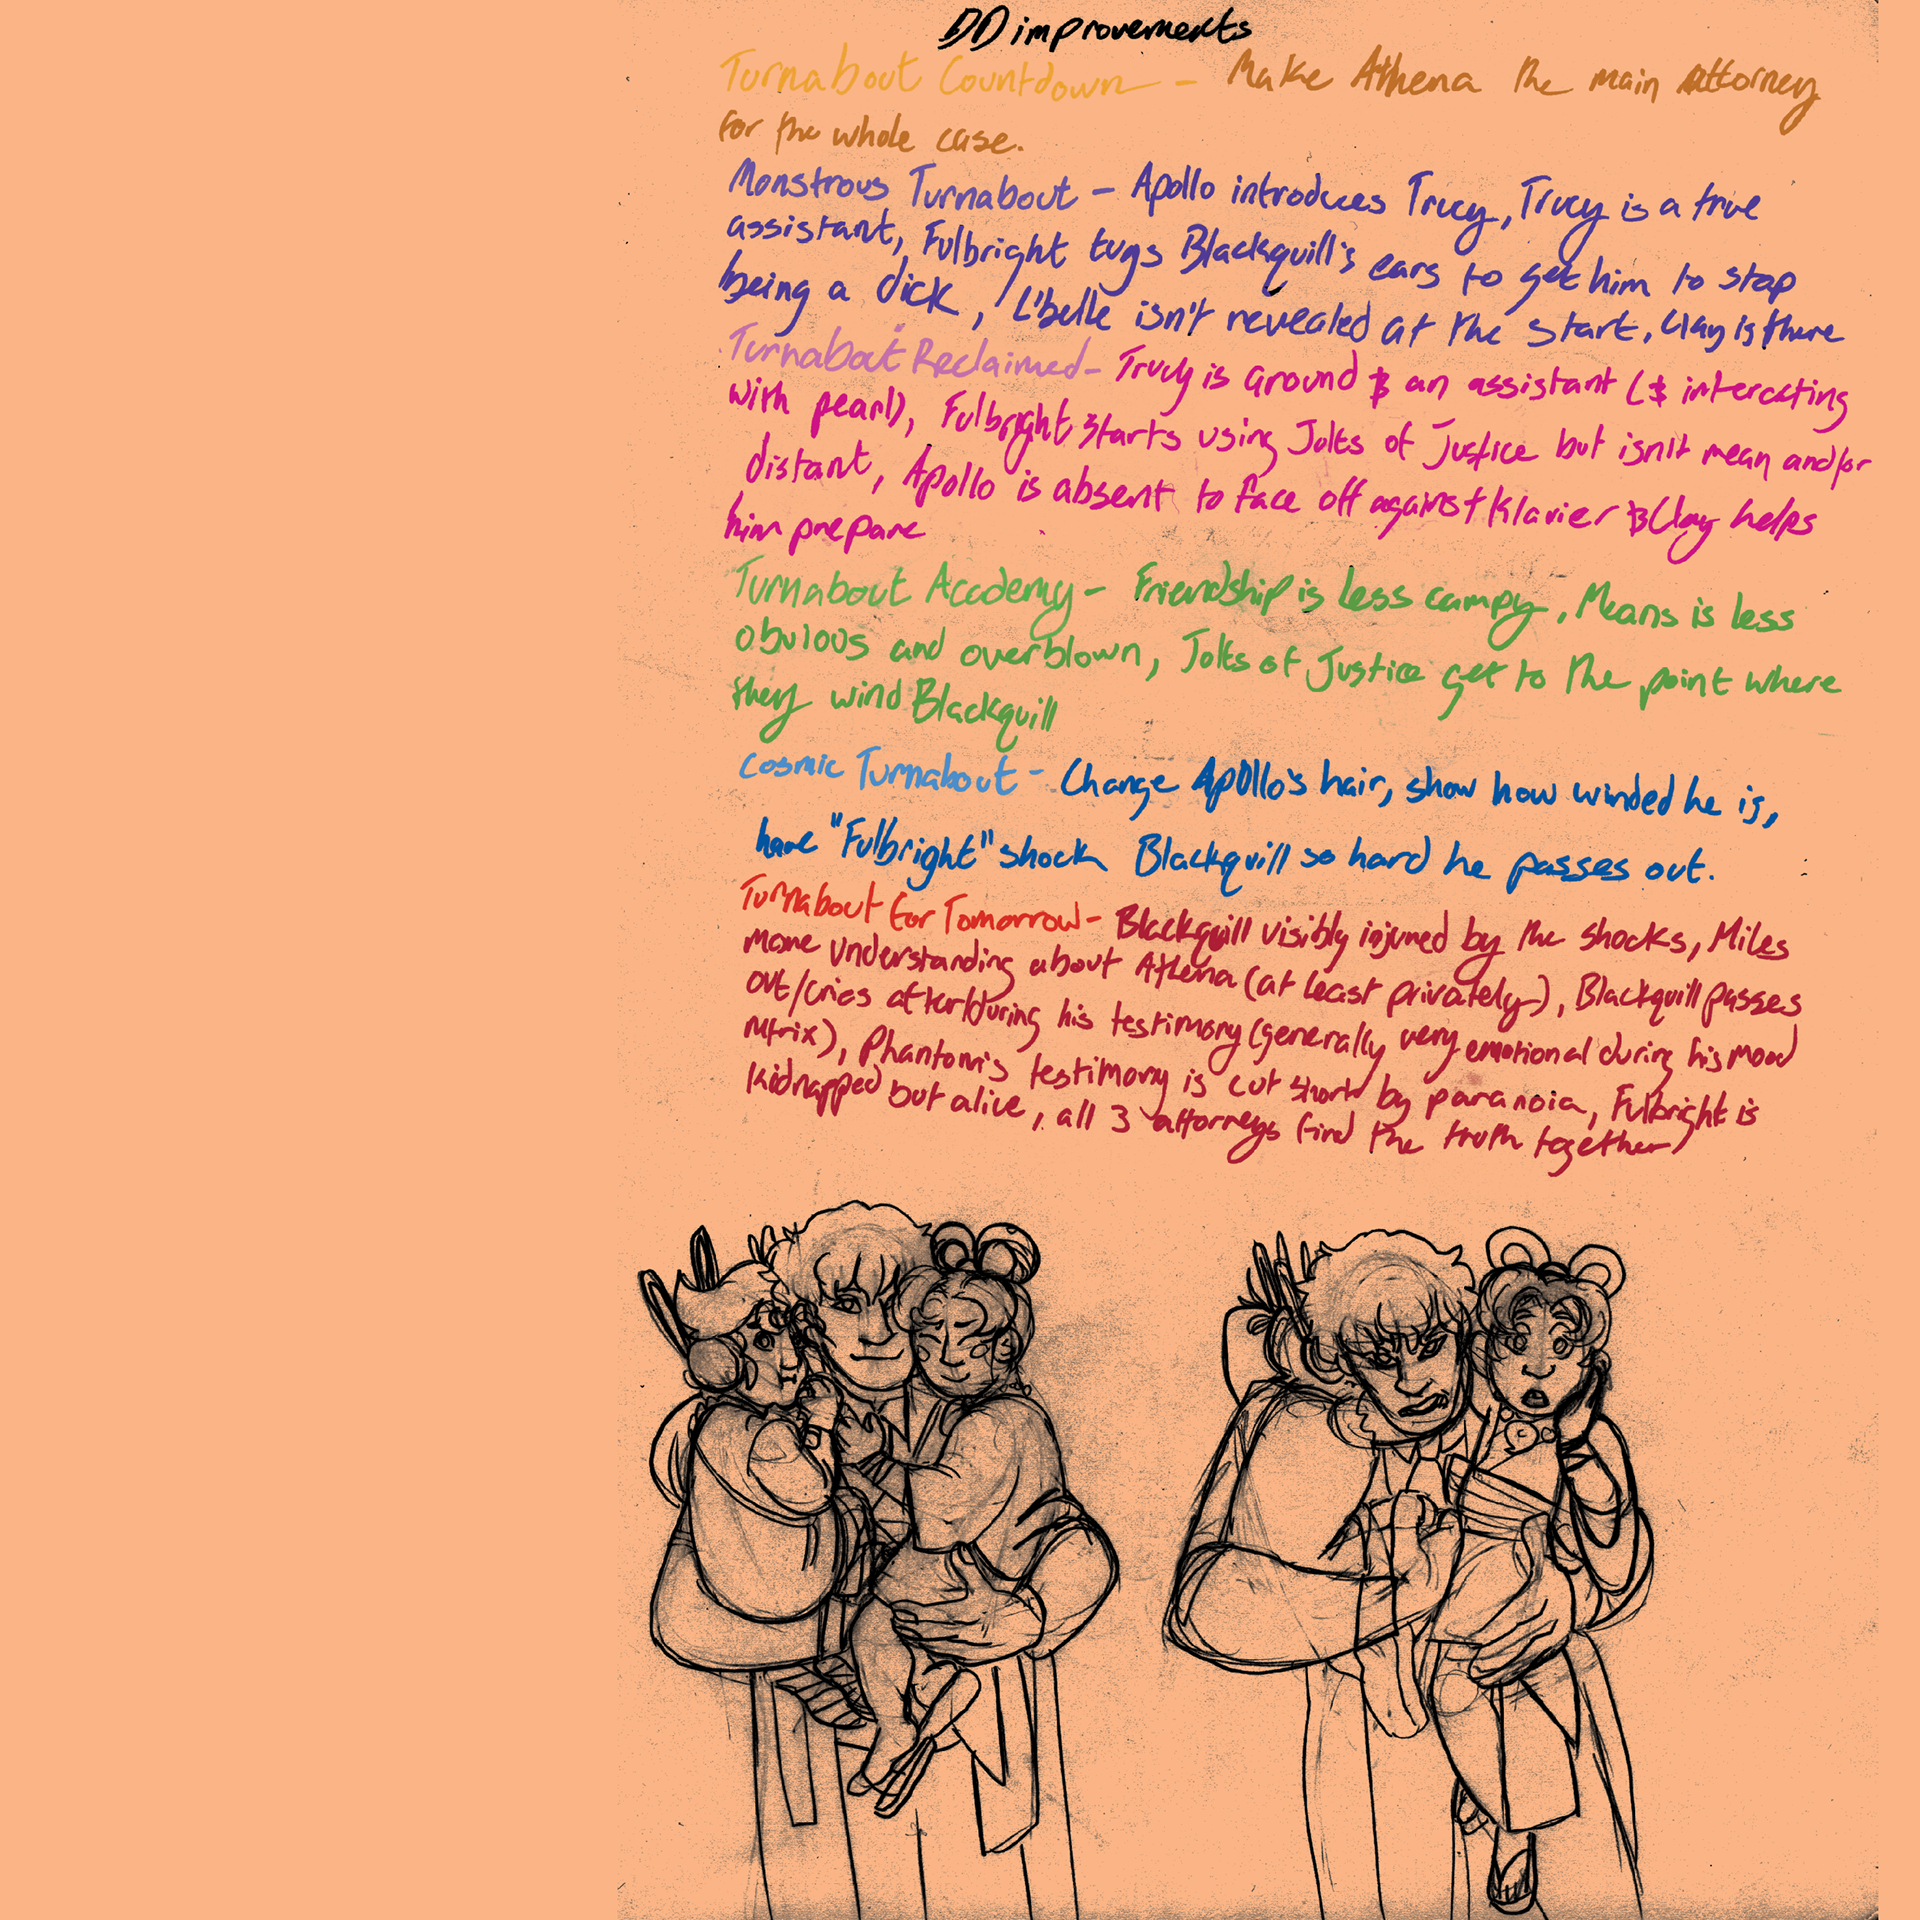 DD improvements
Turnabout Countdown - Make Athena the main attorney
for the whole case.
Monstrous Turnabout - Apollo introduces Trucy, Trucy is a true
assistant, Fulbright tugs Blackquill's ears to get him to stop
being a dick, L'belle isn't revealed at the start, Clay is there
Turnabout Reclaimed - Trucy is around & an assistant (& interacting
with pearl), Fulbright starts using Jolts of Justice but isn't mean and/or
distant, Apollo is absent to face off against Klavier & Clay helps
him prepare
Turnabout Academy - Friendship is less campy, Means is less
obvious and overblown, Jolts of Justice get to the point where
they wind Blackquill
Cosmic Turnabout - Change Apollo's hair, show how winded he is,
have "Fulbright" shock Blackquill so hard he passes out.
Turnabout for Tomorrow - Blackquill visibly injured by the shocks, Miles
more understanding about Athena (at least privately), Blackquill passes
out/cries after/during his testimony (generally very emotional during his mood
matrix), Phantom's testimony is cut short by paranoia, Fulbright is
kidnapped but alive, all 3 attorneys find the truth together